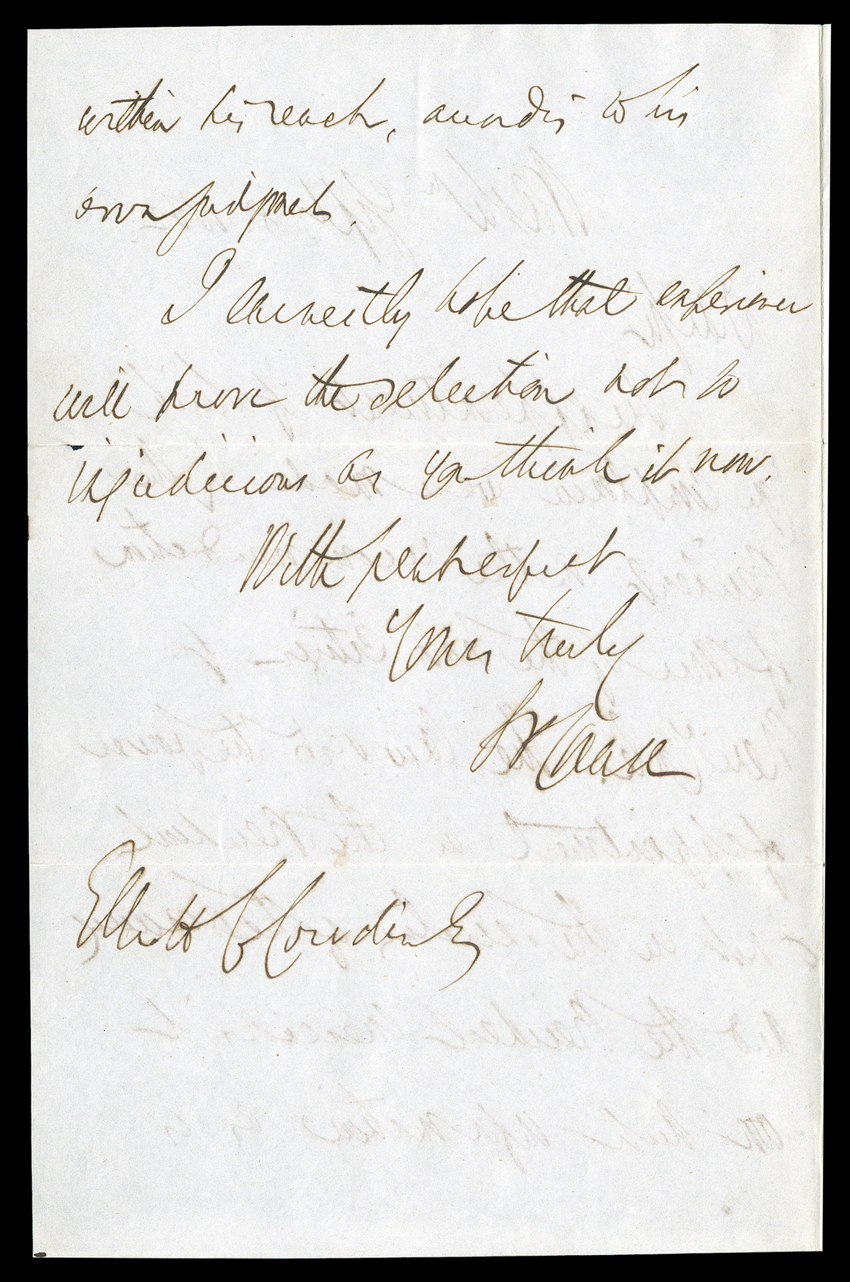 within his reach, according to his
own judgment.
I earnestly hope that experience
will prove the selection not so
injudicious as you think it now.
With great respect
Yours truly
S P Chase
Elliott C Cowdin Esq